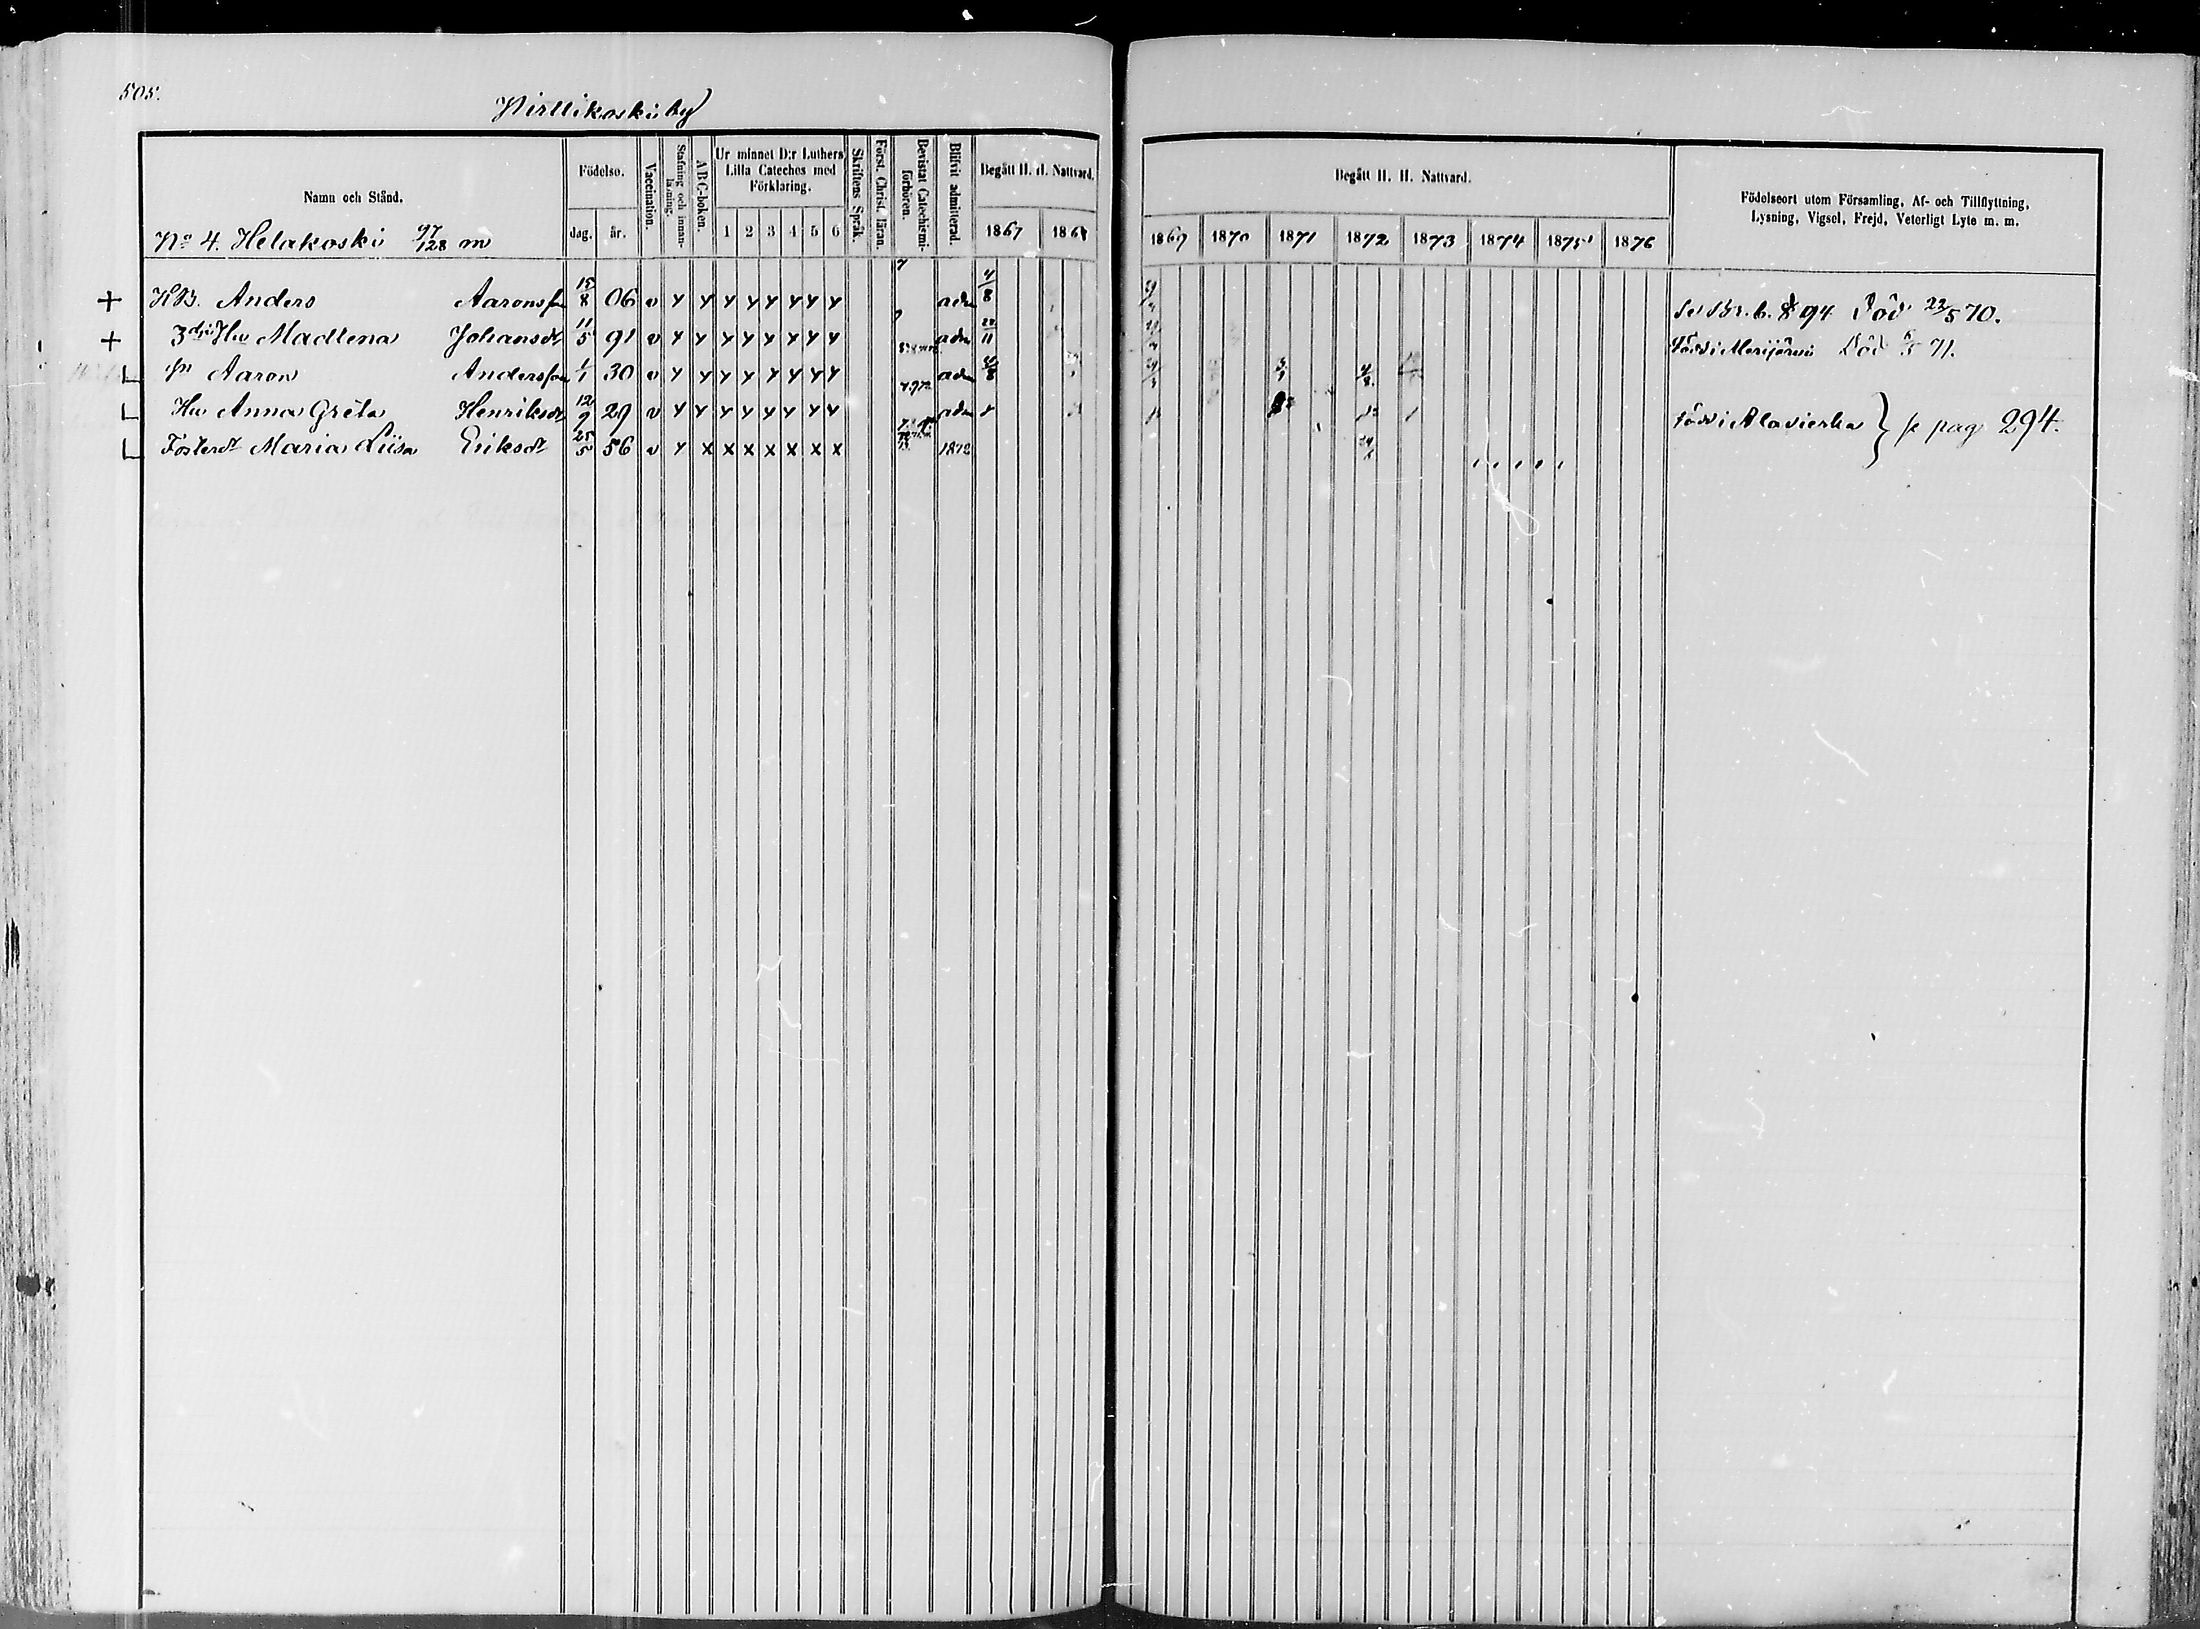 505.
Pirttikoski by
Namn och Stånd.
Födelse.
dag. år.
Vaccination.
Stafning och innanläsning.
ABC-boken.
Ur minnet D:r Luthers Lilla Cateches med Förklaring.
1 2 3 4 5 6
Skriftens Språk.
Först. Christ. läran.
Bevistat Catechismiförhören.
Blifvit admitterad.
Begått H. H. Nattvard.
1867 1868
Begått H. H. Nattvard.
1869 1870 1871 1872 1873 1874 1875 1876
Födelseort utom Församling, Af- och Tillflyttning, Lysning, Vigsel, Frejd, Veterligt Lyte m. m.
No 4. Helakoski 97/128 m
+ KB. Anders Aaronsson 15/8 06 v adm 4/8 Död 22/5 70.
+ 3dje Hu Madlena Johansdr 11/5 91 v adm född i Merijärvi Död 71.
Sn Aaron Andersson 1/1 30 v adm 4/8
Hu Anna Greta Henriksdr 12/9 29 v adm född i Alavieska } se pag 294.
Fosterdr Maria Liisa Eriksdr 25/5 56 v 1872